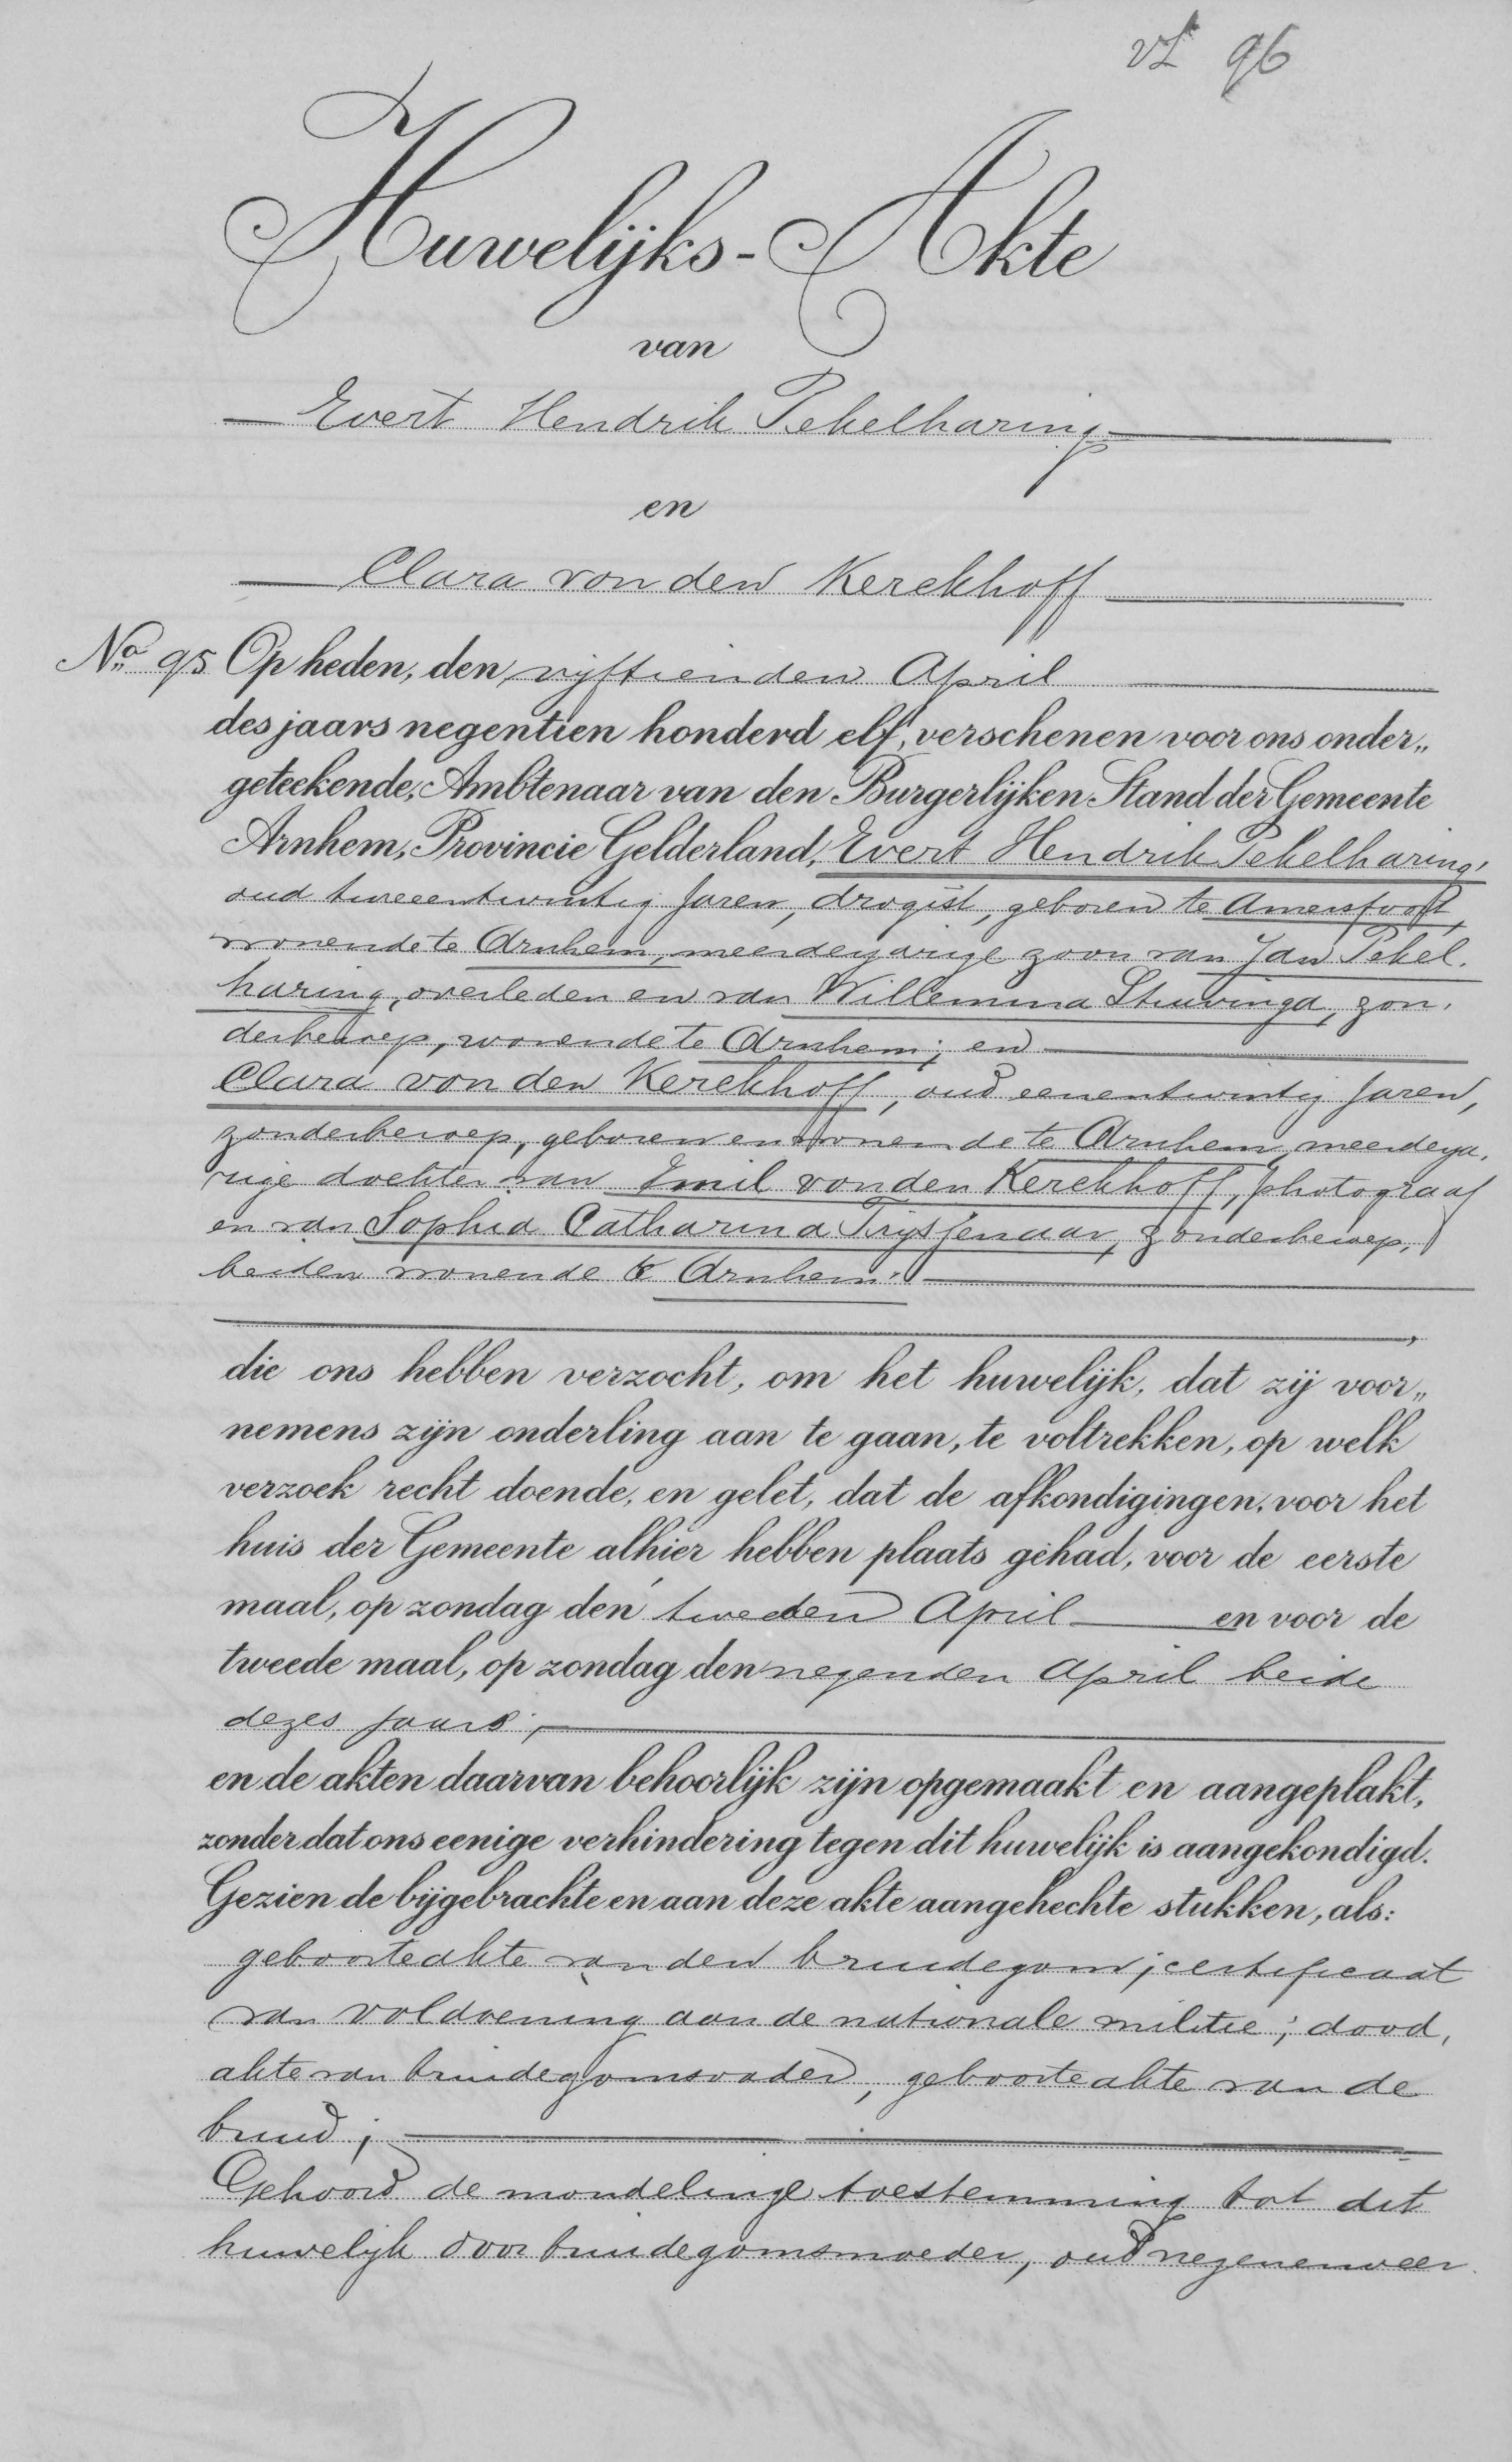 96
Huwelijks-Akte
van
Evert Hendrik Pekelharing
en
Clara von den Kerckhoff
No. 95 Op heden, den vijftienden April
des jaars negentien honderd elf, verschenen voor ons onder„
geteekende, Ambtenaar van den Burgerlijken Stand der Gemeente
Arnhem, Provincie Gelderland, Evert Hendrik Pekelharing,
oud tweeentwintig jaren, drogist, geboren te Amersfoort,
wonende te Arnhem, meerderjarige zoon van Jan Pekel-
haring, overleden en van Willemina Stuvinga, zon-
der beroep, wonende te Arnhem; en
Clara von den Kerckhoff, oud eenentwintig jaren,
zonder beroep, geboren en wonende te Arnhem, meerderja-
rige dochter van Emil von den Kerckhoff, photograaf
en van Sophia Catharina Thijssenaar, zonder beroep,
beiden wonende te Arnhem;
die ons hebben verzocht, om het huwelijk, dat zij voor„
nemens zijn onderling aan te gaan, te voltrekken, op welk
verzoek recht doende, en gelet, dat de afkondigingen, voor het
huis der Gemeente alhier hebben plaats gehad, voor de eerste
maal, op zondag den tweeden April en voor de
tweede maal, op zondag den negenden April beide
dezes jaars;
en de akten daarvan behoorlijk zijn opgemaakt en aangeplakt,
zonder dat ons eenige verhindering tegen dit huwelijk is aangekondigd.
Gezien de bijgebrachte en aan deze akte aangehechte stukken, als:
geboorteakte van den bruidegom; certificaat
van voldoening aan de nationale militie; dood-
akte van bruidegomsvader, geboorteakte van de
bruid;
Gehoord de mondelinge toestemming tot dit
huwelijk door bruidegomsmoeder, oud negenenveer-